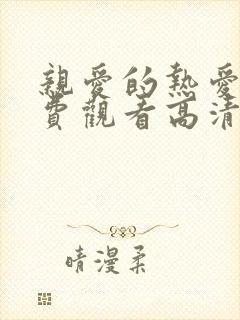 親愛的熱愛
費觀看高清
晴漫柔